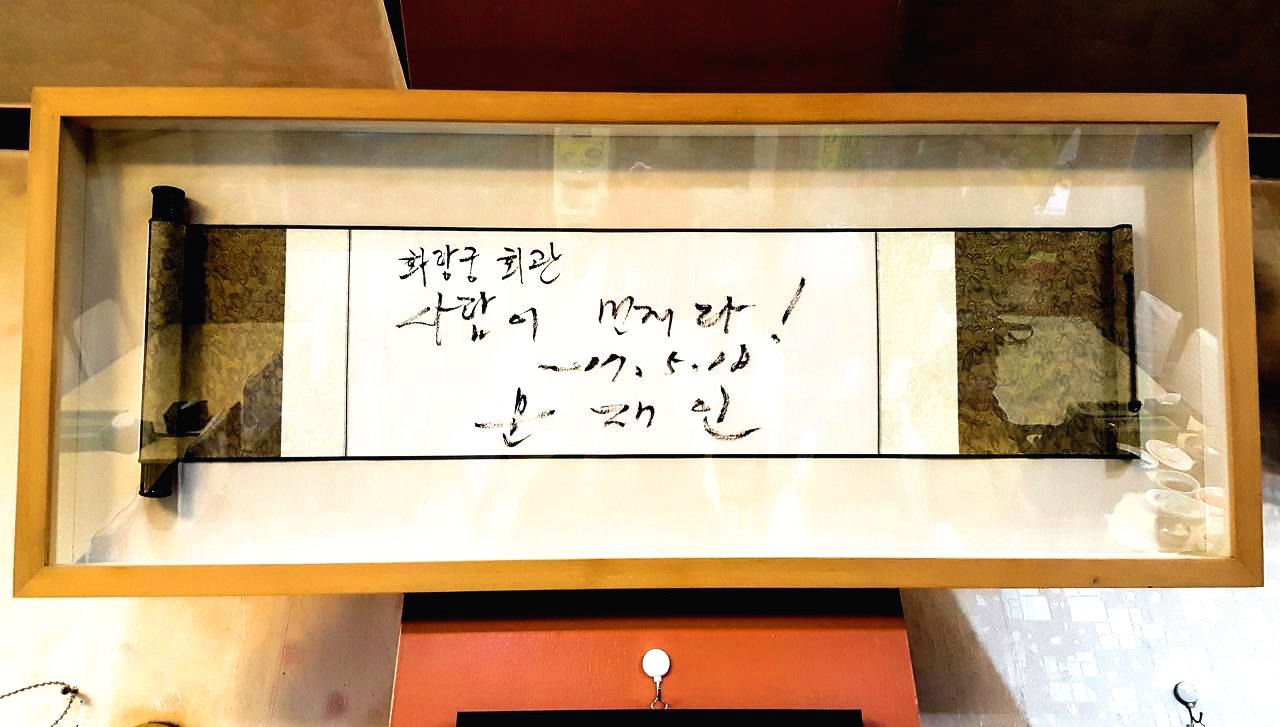 화랑궁 회관
사람이 먼저다!
2017. 5. 18
문 재 인